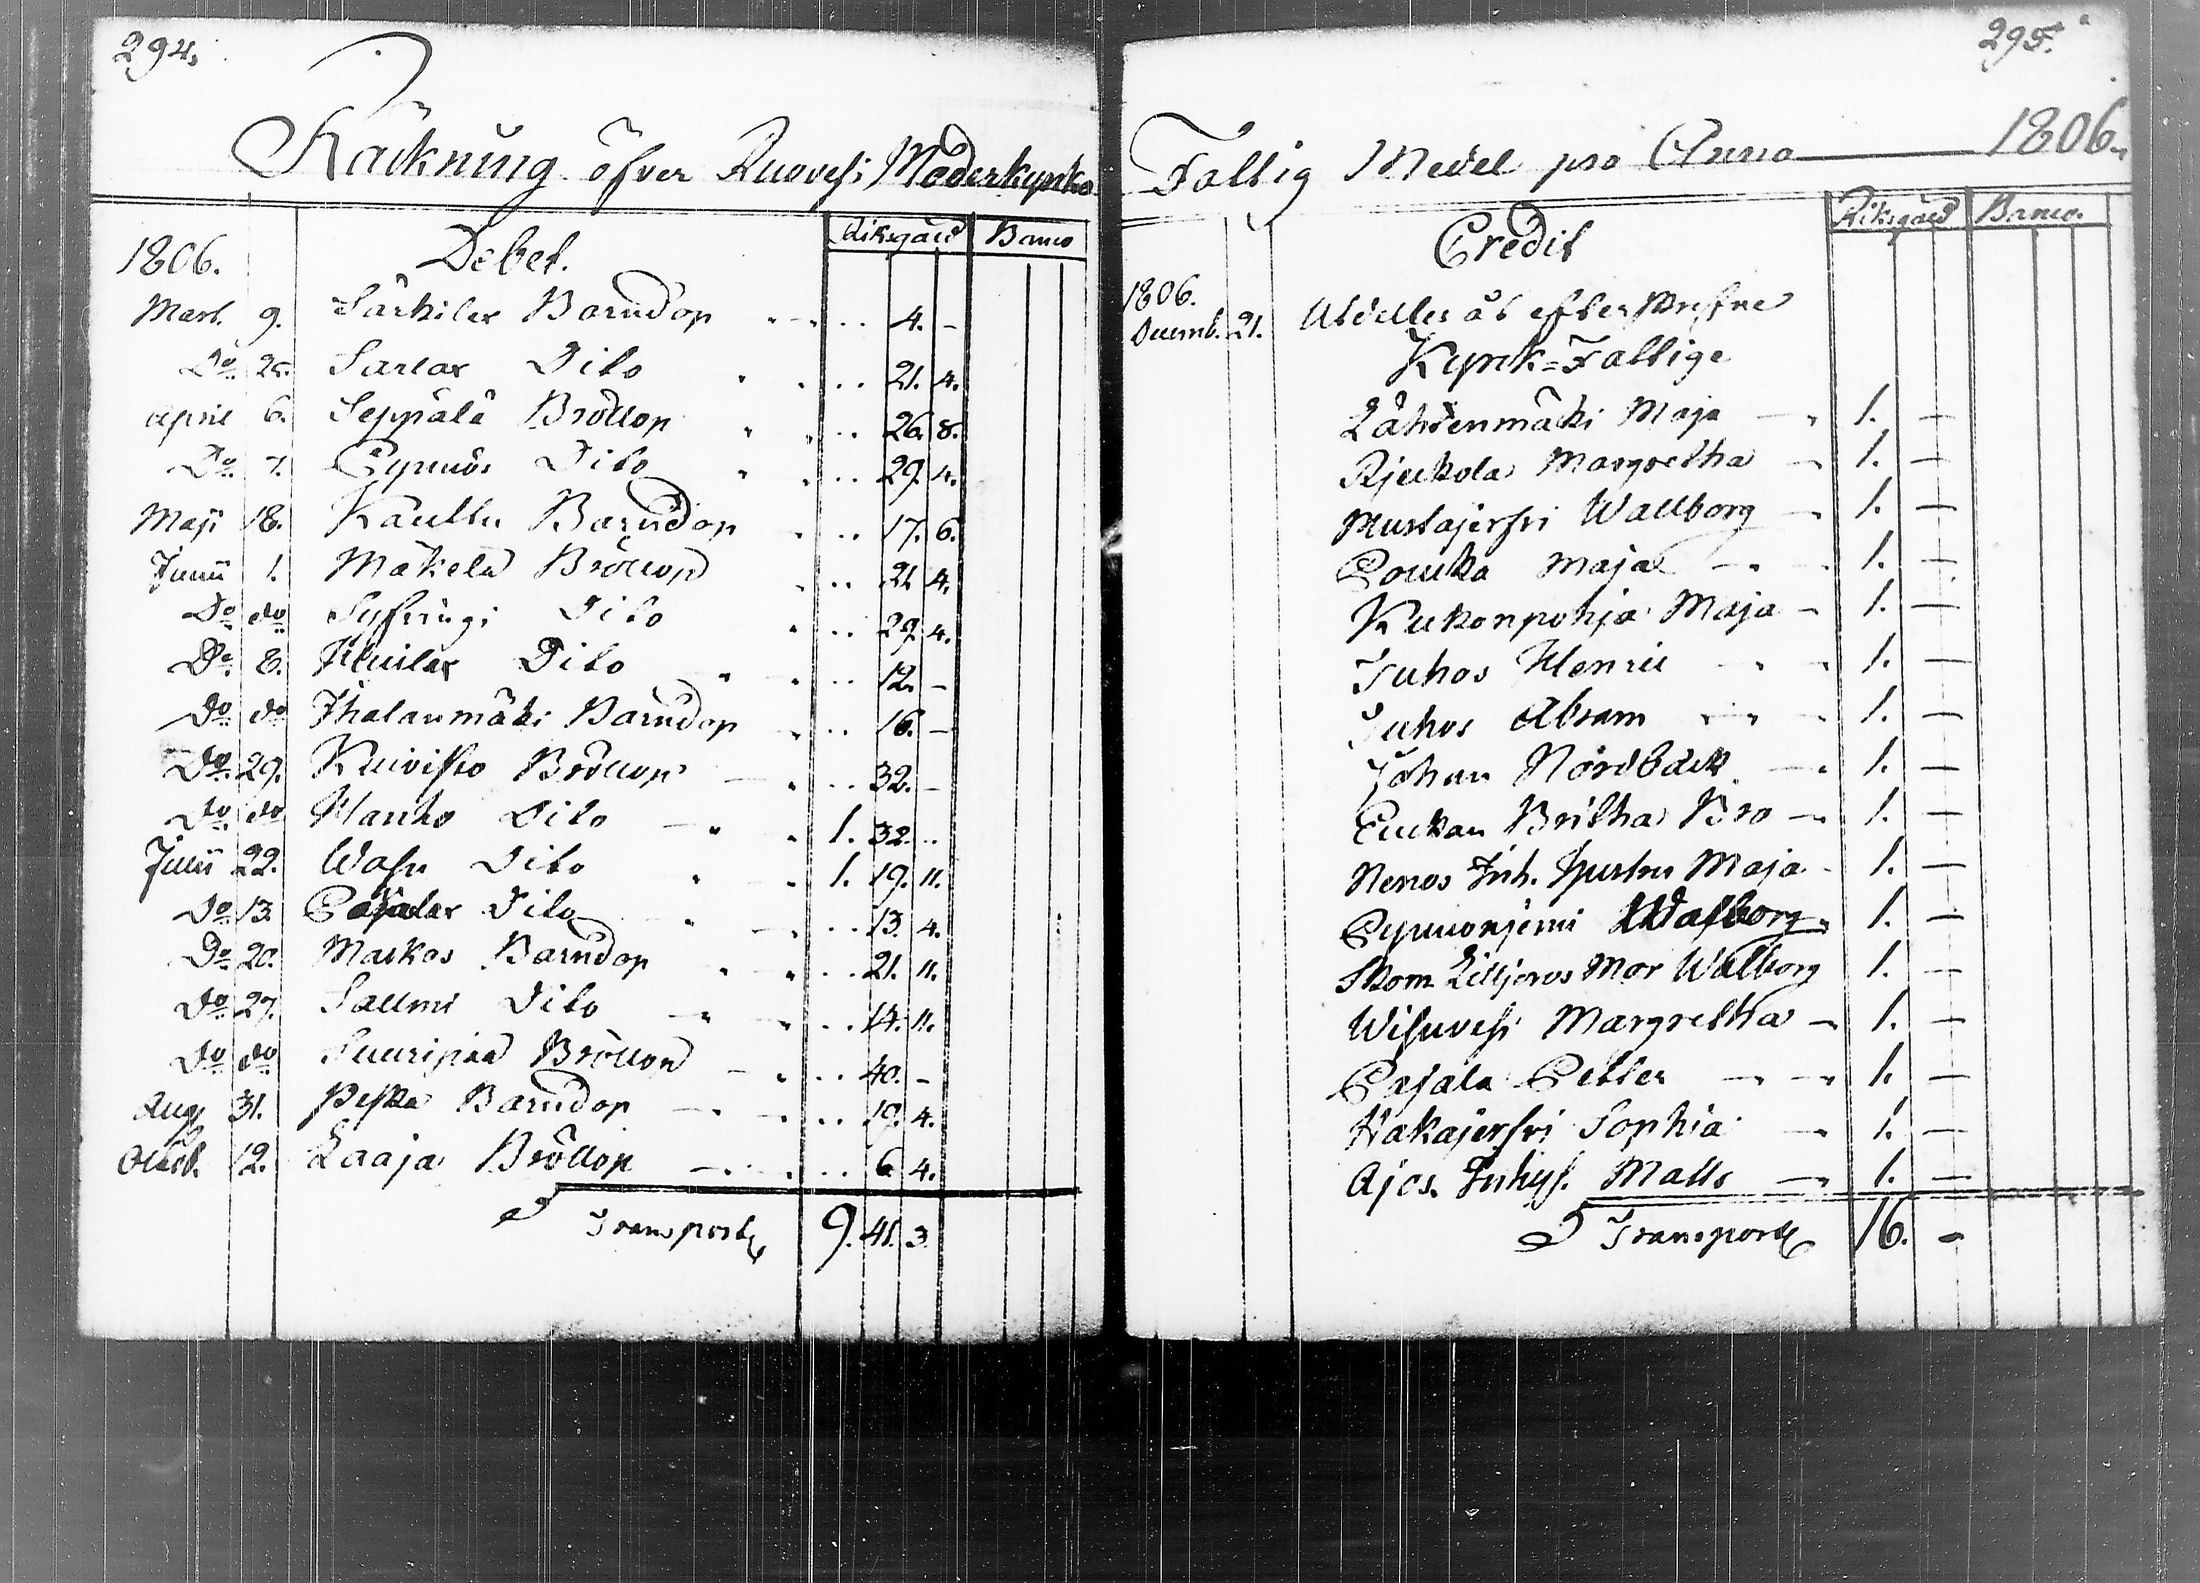 294.
Räkning öfver Ruovesi Moderkyrko
Riksgäld Banco
1806. Debet.
Mart. 9. Särkilax Barndop 4. -
Do 25. Sarlax Dito 21. 4.
April 6. Seppälä Bröllop 26. 8.
Do 7. Dito 29. 4.
Maji 18. Kauttu Barndop 17. 6.
Junii 1. Mäkelä Bröllop 21. 4.
Do do Syfringi Dito 29. 4.
Do 8. Dito 12. -
Do do Ihalanmäki Barndop 16. -
Do 29. Kuivisto Bröllop 32. -
Do do Hanho Dito 1. 32. ..
Julii 22. Dito 1. 19. 11.
Do 13. Pajalax Dito 13. 4.
Do 20. Markos Barndop 21. 11.
Do 27. Sallmi Dito 14. 11.
Do do Suuripää Bröllop 40. -
Aug. 31. Peska Barndop 19. 4.
Octob. 12. Laaja Bröllop 6. 4.
Transport 9. 41. 3.
295.
Fattig Medel pro Anno 1806.
Riksgäld Banco.
Credit
1806.
Decemb. 21. Utdeltes åt efterskrefne
Kyrck=Fattige
Lähdenmäki Maja 1. -
Rjukola Margretha 1. -
Mustajerfvi Wallborg 1. -
Pouka Maja 1. -
Kukonpohja Maja 1. -
Juhos Henric 1. -
Juhos Abram 1. -
Johan Nordbäck 1. -
Britha 1. -
Inh. Hustru Maja 1. -
Walborg 1. -
Skom. Lilljeros Mor Walborg 1. -
Wisuvesi Margretha 1. -
Pajala Petter 1. -
Hakajerfvi Sophia 1. -
Ajos. Inhys. Matts 1. -
Transport 16. -